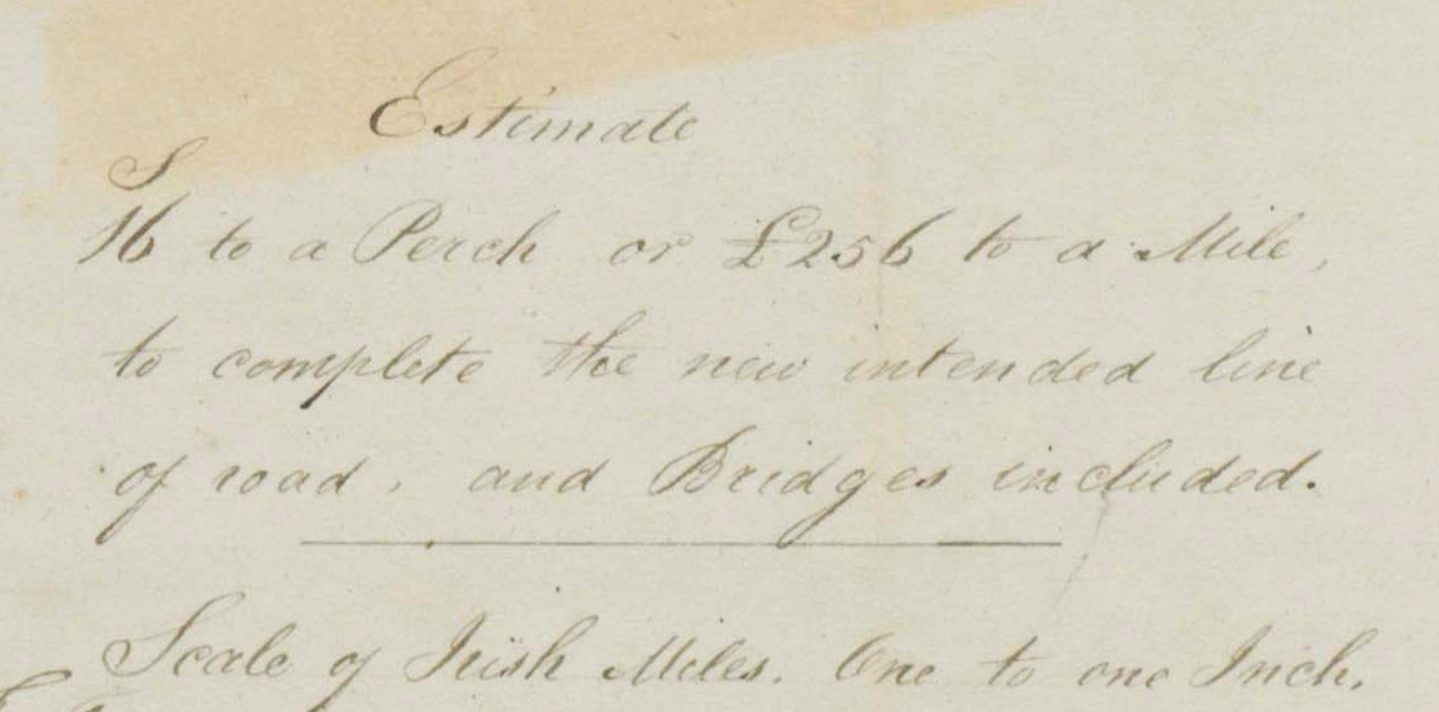 Estimate
S
16 to a Perch or £256 to a Mile,
to complete the new intended line
of road, and Bridges included.
Scale of Irish Miles. One to one Inch.